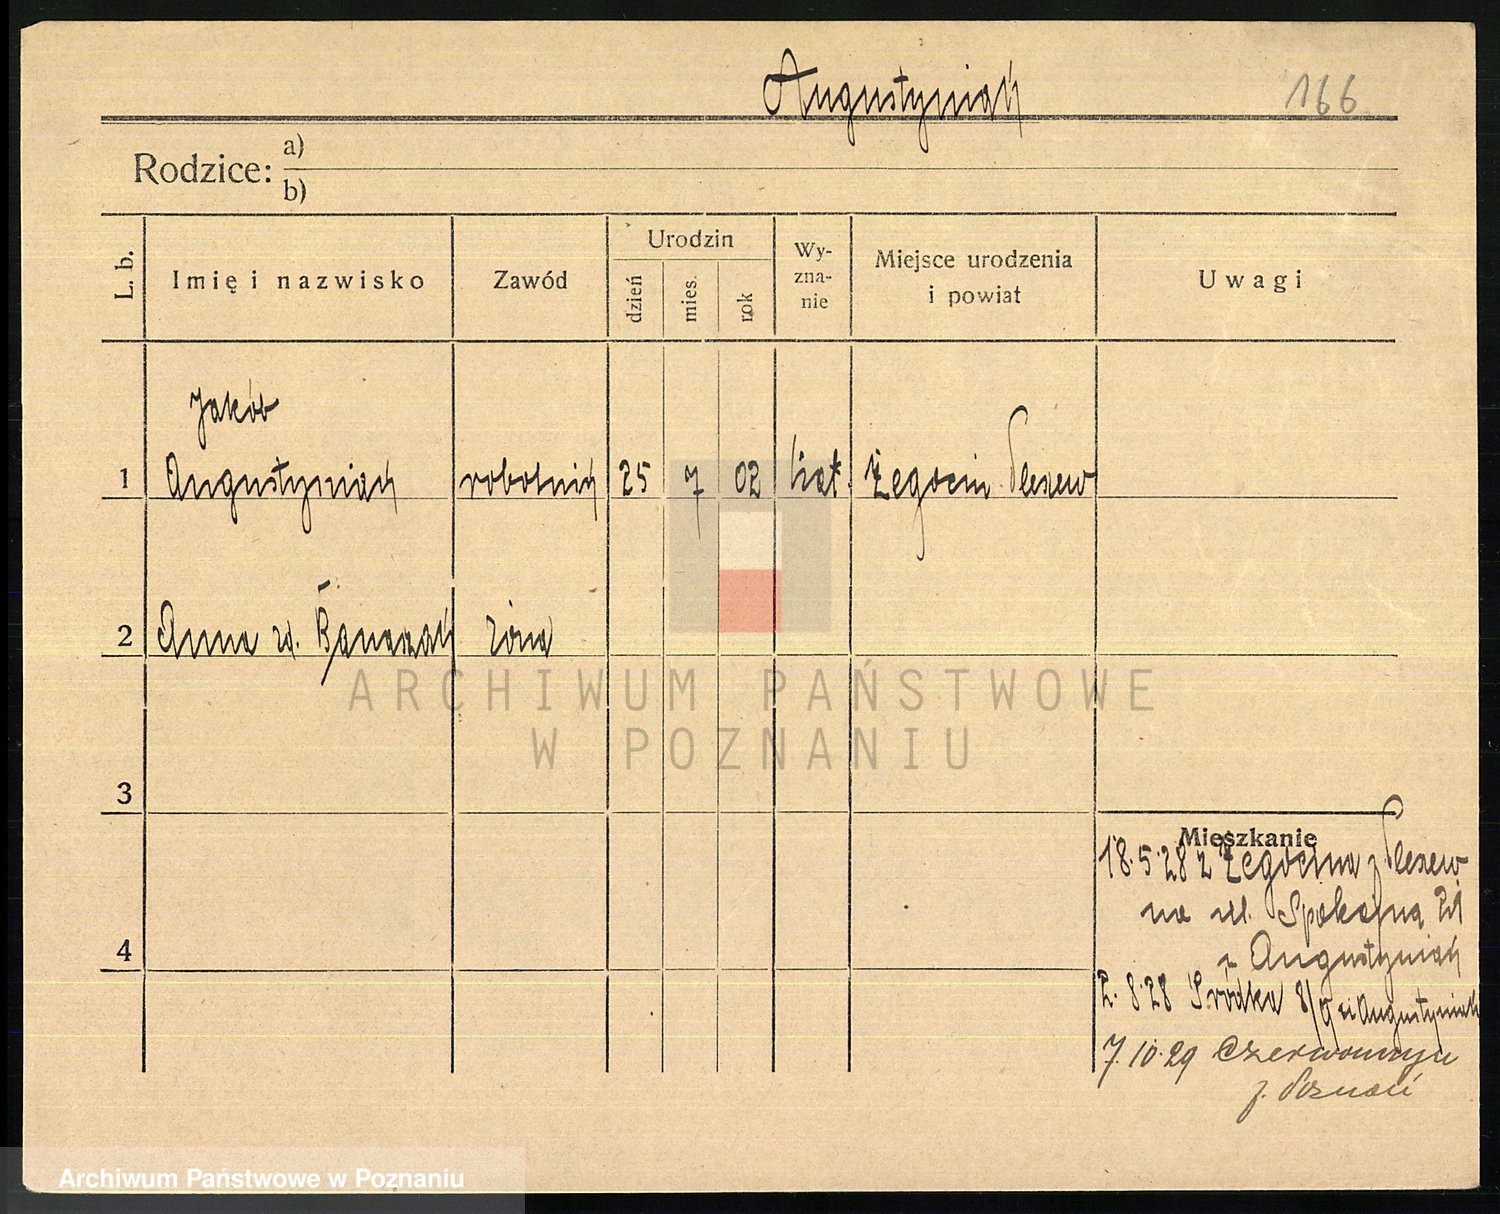 Augustyniak
166
Rodzice: a)
b)
L. b.
Imię i nazwisko
Zawód
Urodzin
dzień
mies.
rok
Wy-
zna-
nie
Miejsce urodzenia
i powiat
Uwagi
Jakób
1 Augustyniak robotnik 25 7 02 kat. Żegocin Pleszew
2 Anna ur. Banaszak żona
ARCHIWUM PAŃSTWOWE
W POZNANIU
3
Mieszkanie
18.5.28 z Żegocina p. Pleszew
na ul. Spokojną 21
Augustyniak
4
2.8.28 Śródka 8/9 Augustyniak
7.10.29
p. Poznań
Archiwum Państwowe w Poznaniu